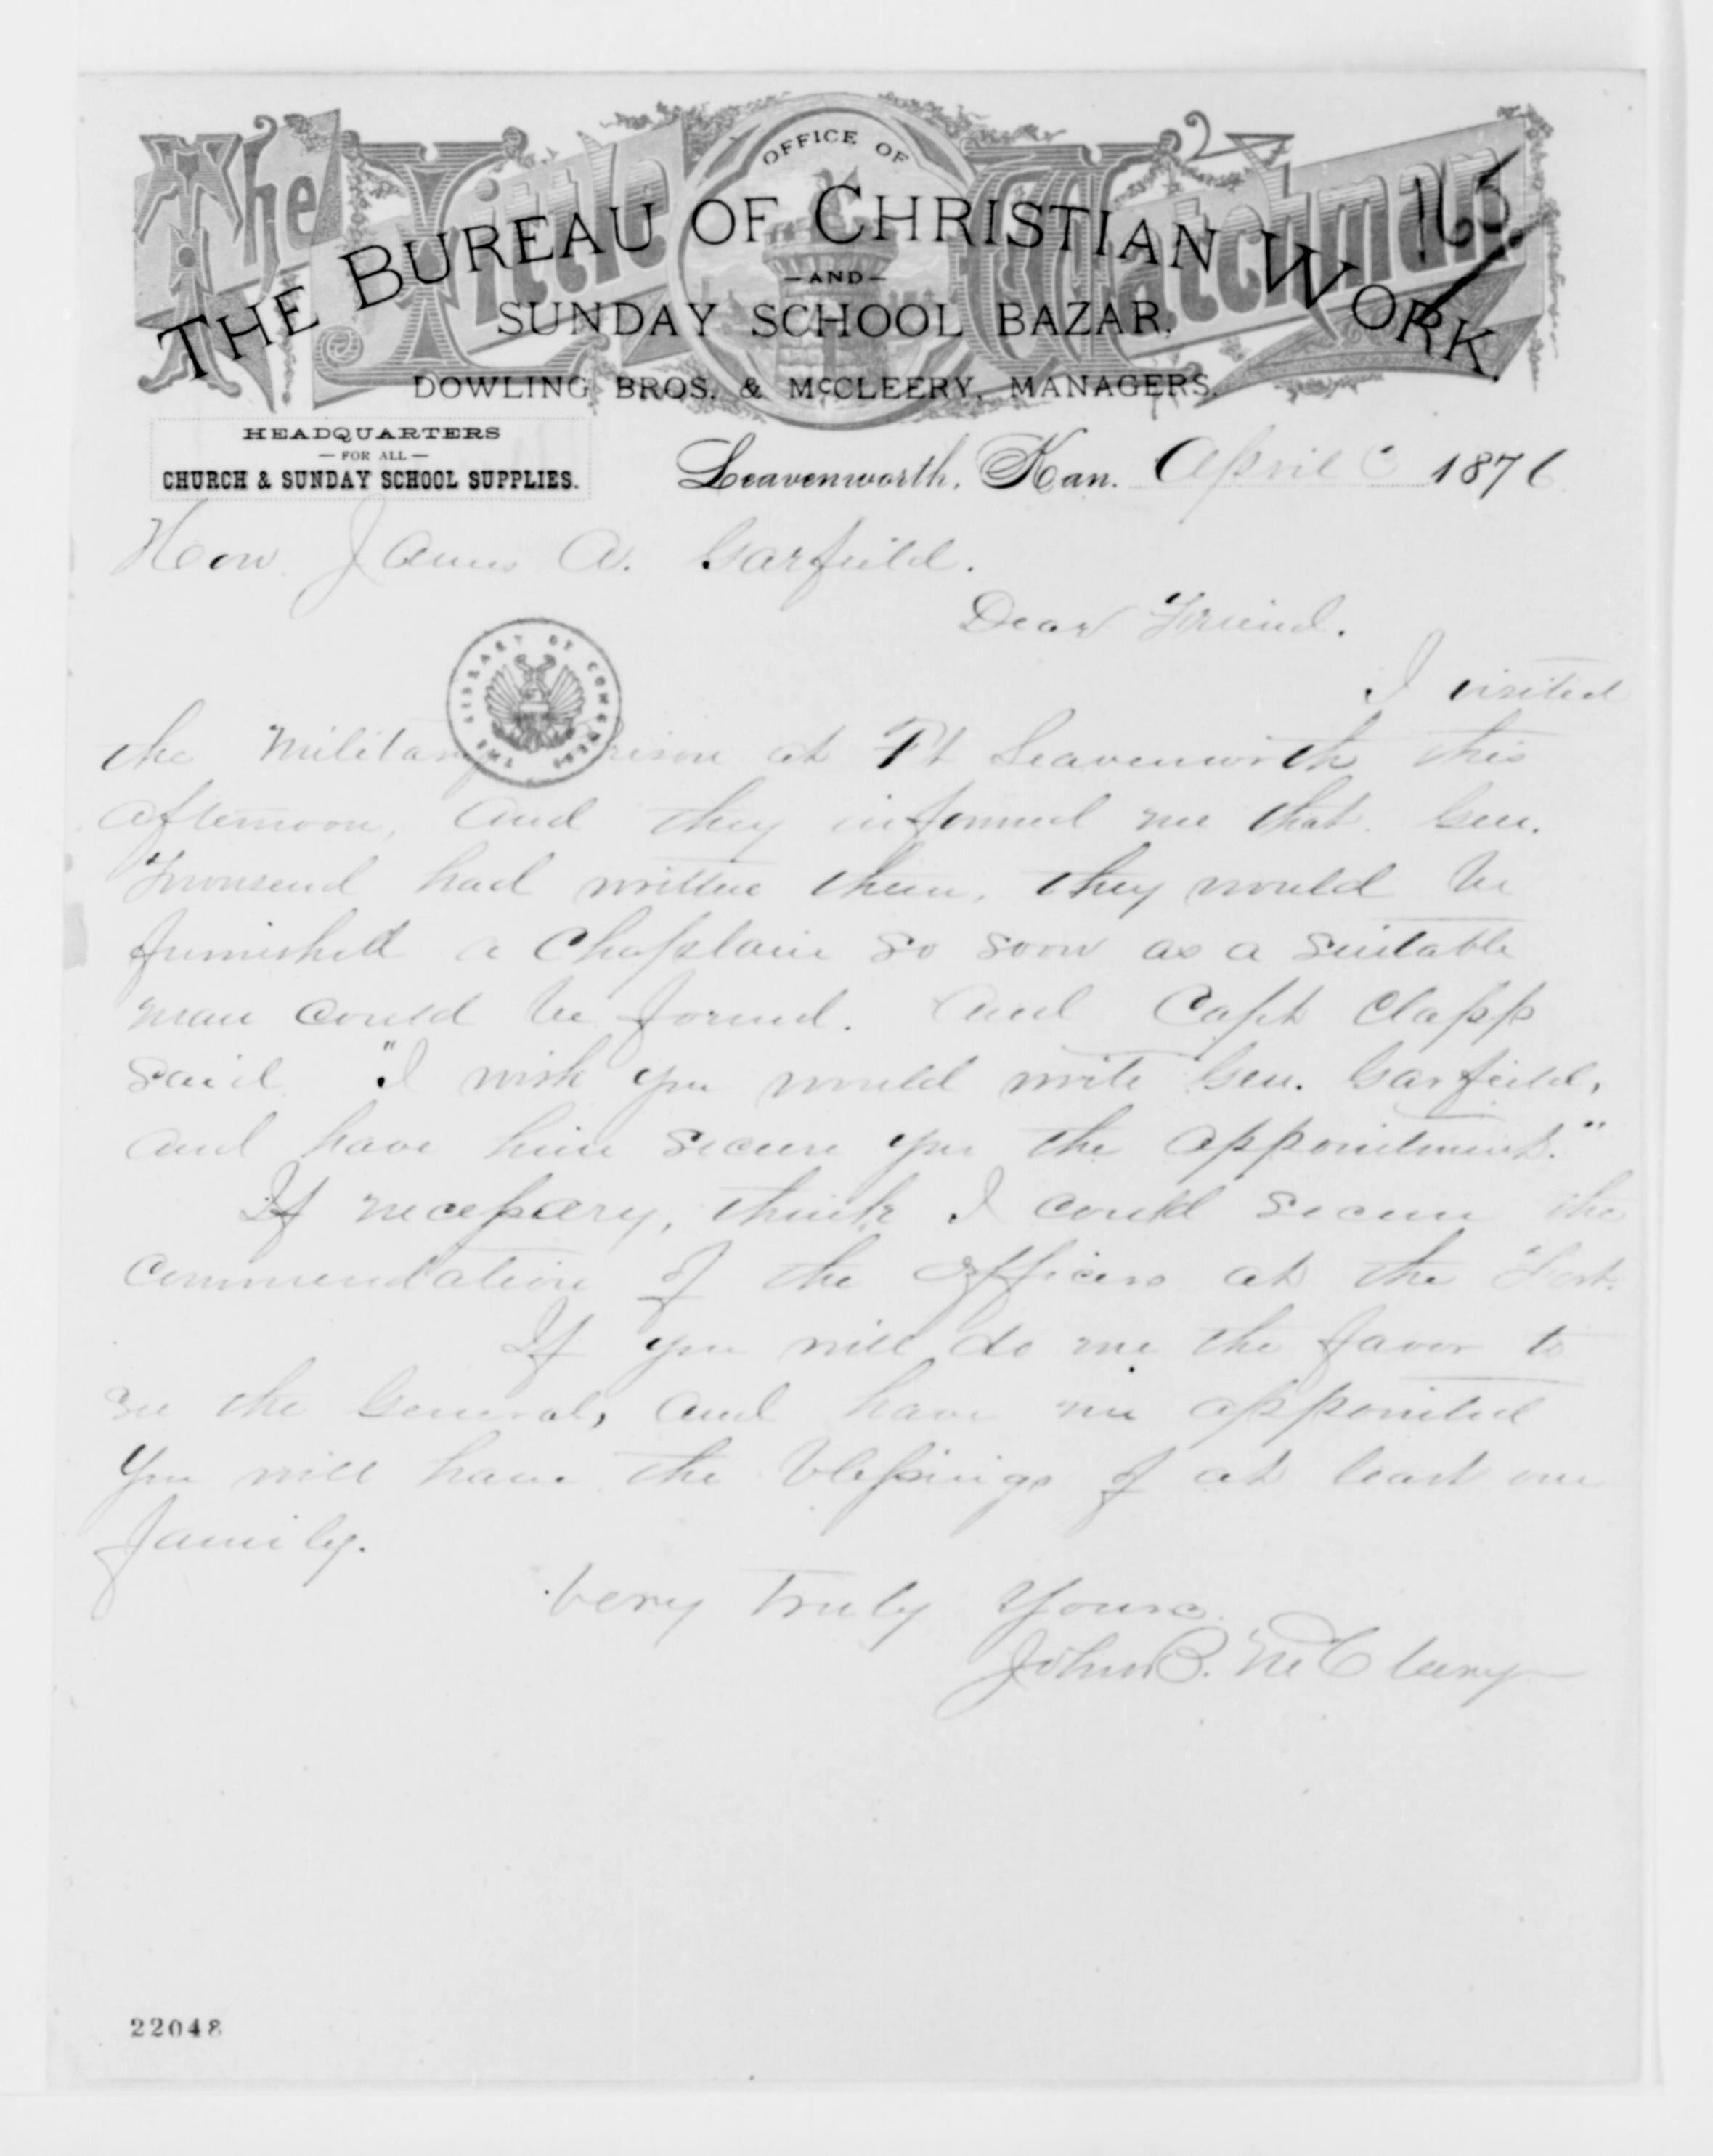 The Little Watchman
165.
OFFICE OF
THE BUREAU OF CHRISTIAN WORK.
—AND—
SUNDAY SCHOOL BAZAR,
DOWLING BROS. & McCLEERY, MANAGERS.
HEADQUARTERS
— FOR ALL —
CHURCH & SUNDAY SCHOOL SUPPLIES.
Leavenworth, Kan. April 1876
Hon James A. Garfield.
Dear Friend.
I visited
the Military Prison at Ft Leavenworth this
afternoon, and they informed me that Gen.
Townsend had written them, they would be
furnished a Chaplain so soon as a suitable
man could be found. And Capt Clapp
said "I wish you would write Gen. Garfield,
and have him secure you the appointment."
If necessary, think I could secure the
commendation of the officers at the Fort.
If you will do me the favor to
see the General, and have me appointed
you will have the blessings of at least one
family.
Very Truly Yours.
John B. McCleery
THE LIBRARY OF CONGRESS
22048